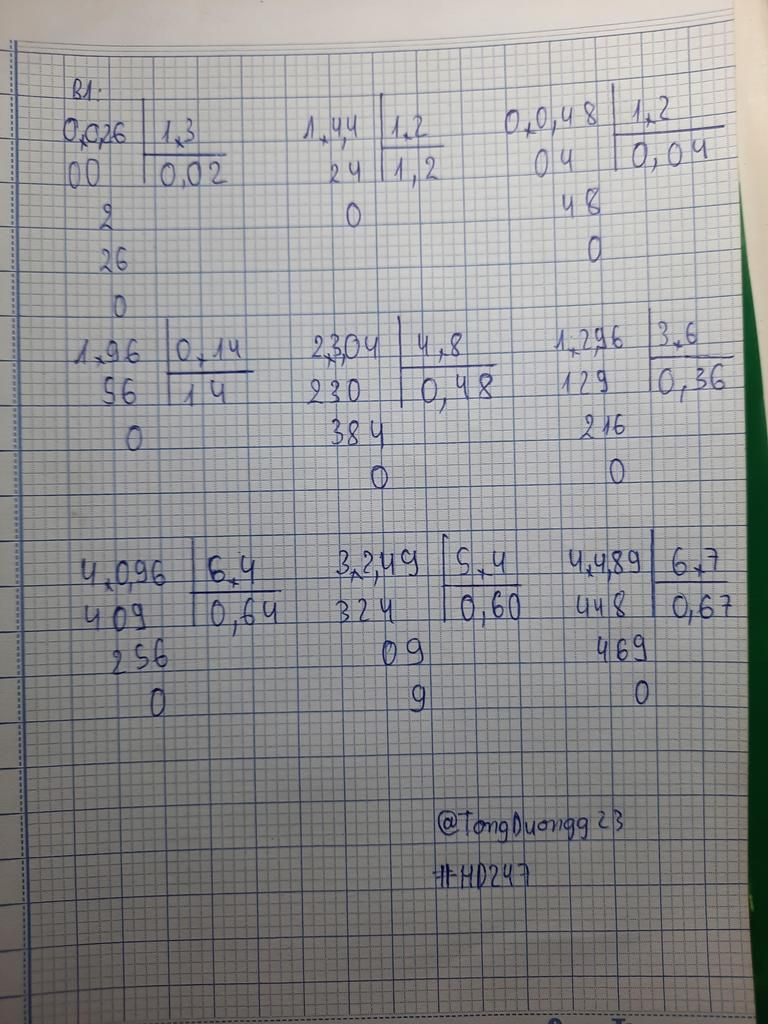 B1:
0,0,26 1,3
00 0,02
2
26
0
1,4,4 1,2
24 1,2
0
0,0,48 1,2
04 0,04
48
0
1,96 0,14
56 14
0
2,3,04 4,8
230 0,48
384
0
1,2,96 3,6
129 0,36
216
0
4,0,96 6,4
409 0,64
256
0
3,2,49 5,4
324 0,60
09
9
4,4,89 6,7
448 0,67
469
0
@TongDuongg23
#HD247